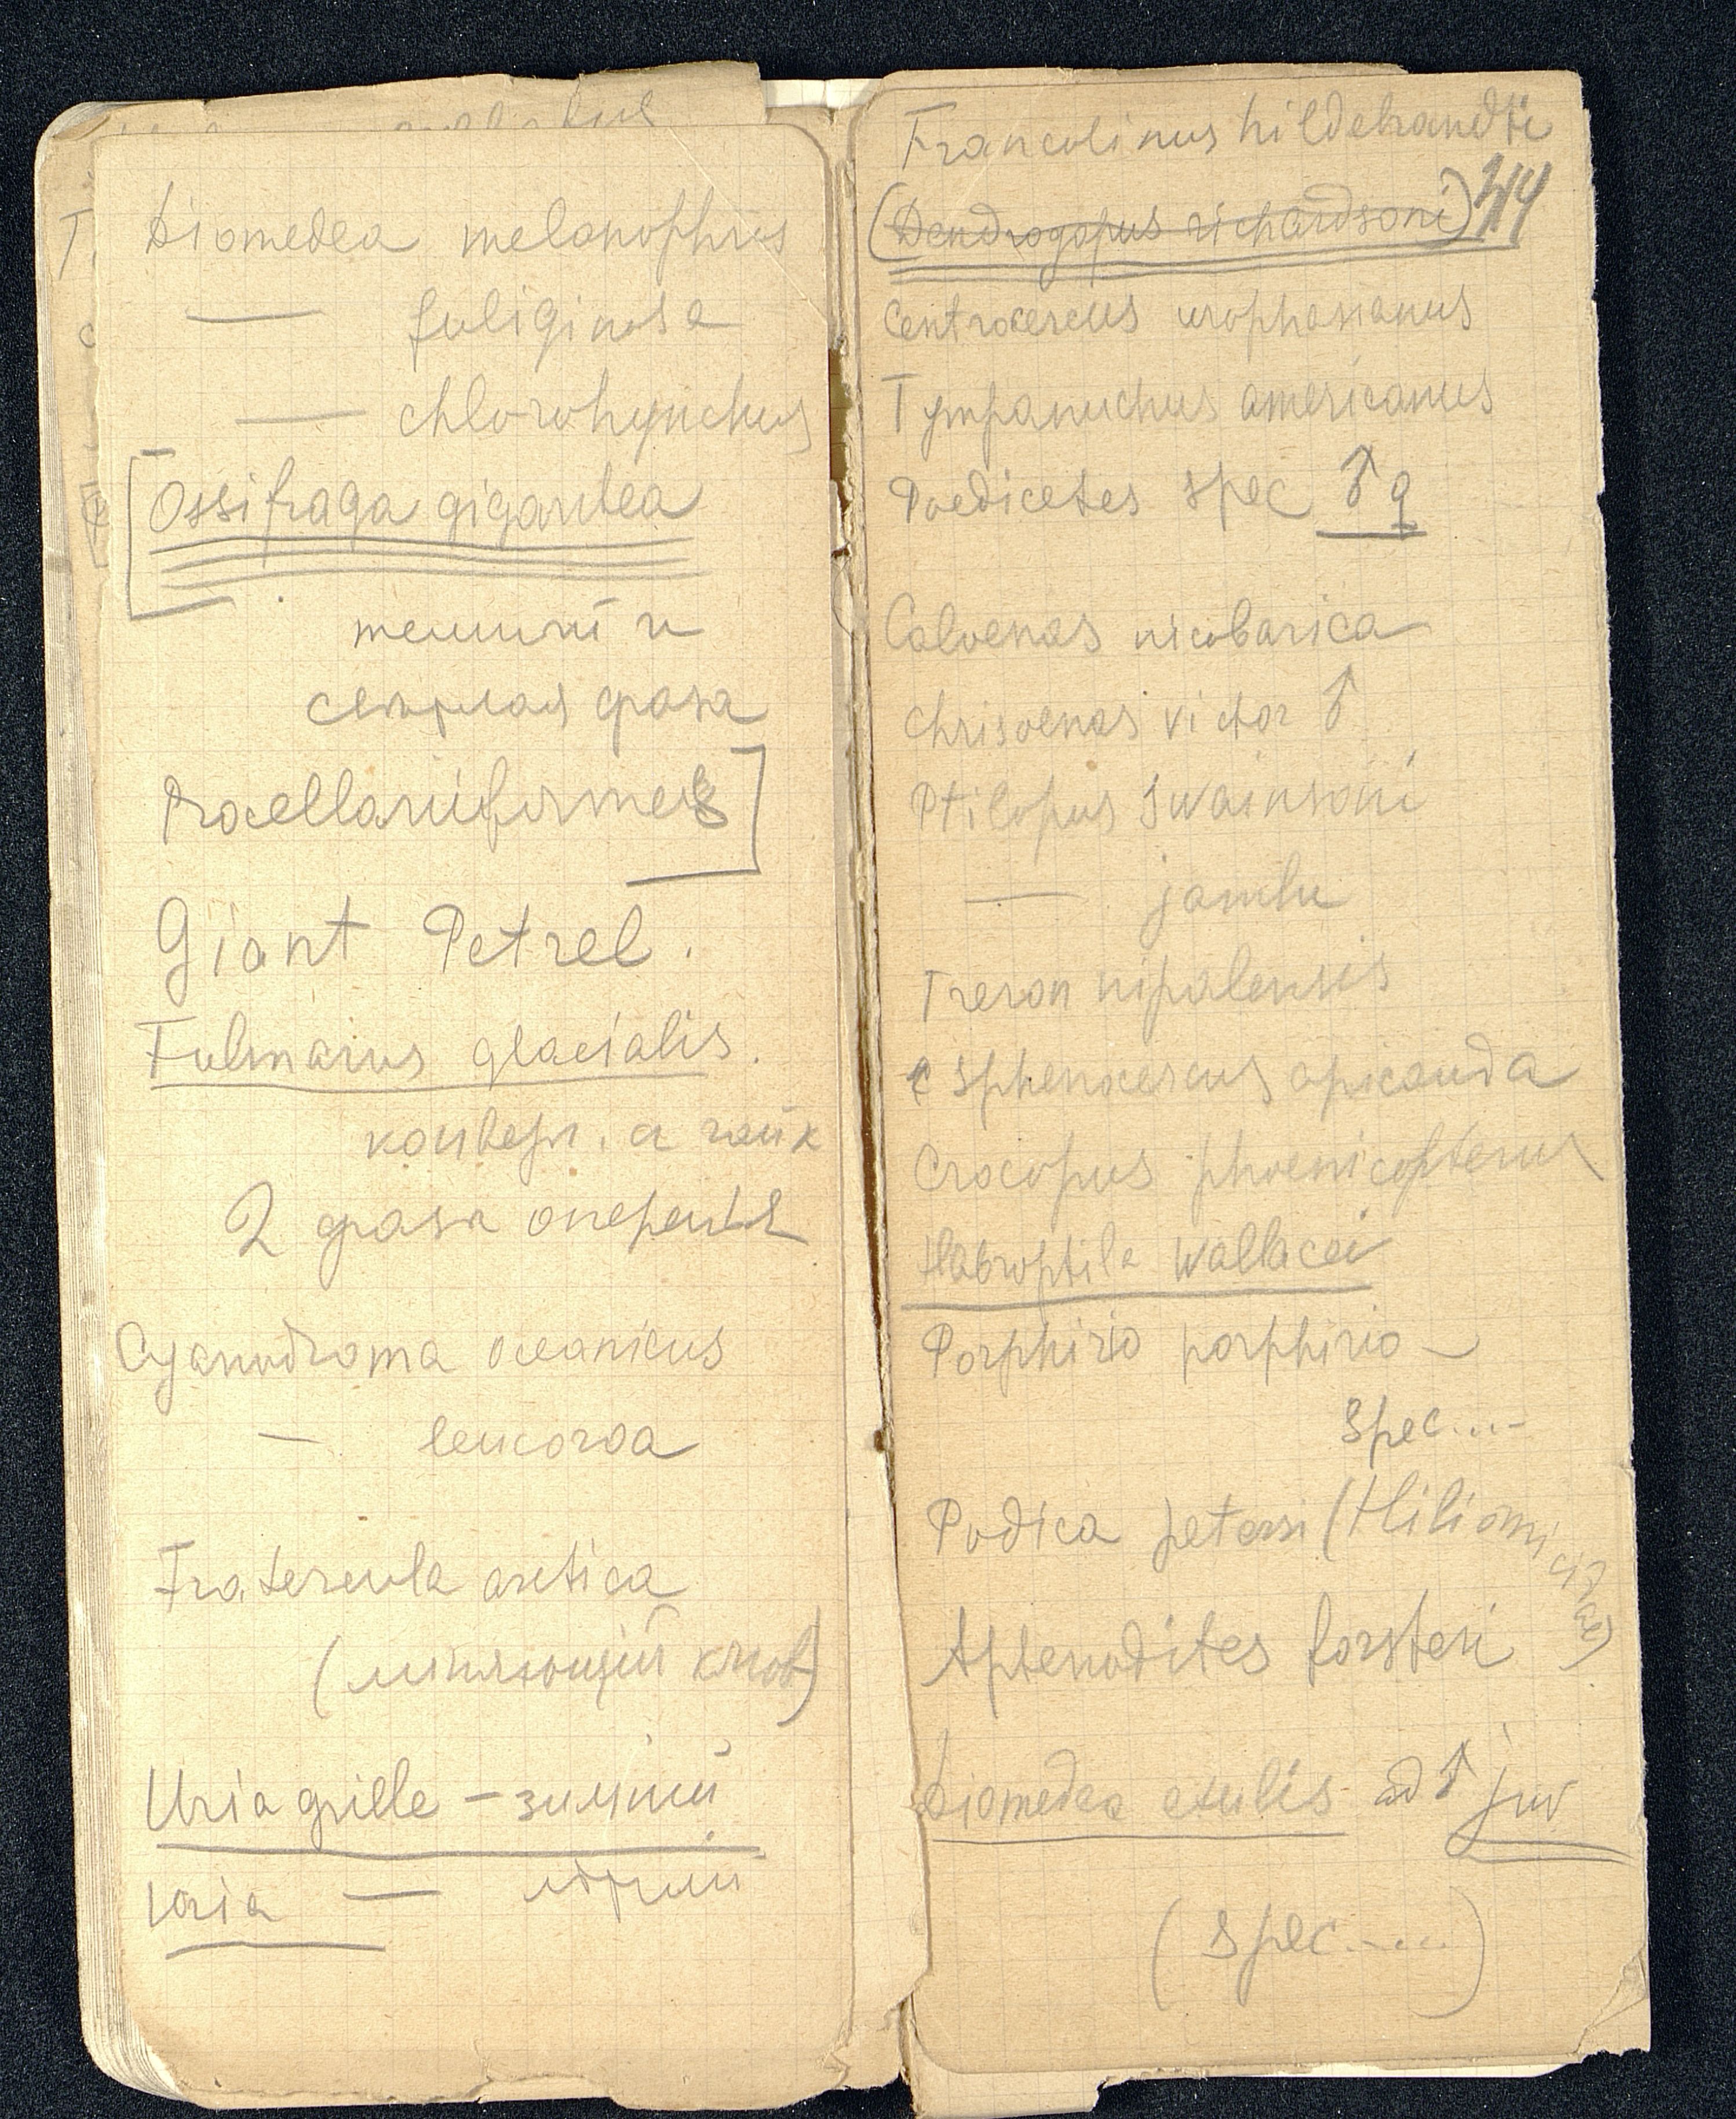 Diomedea melanophris
— fuliginosa
— chlorohynchus
[Ossifraga gigantea
темный и
светлая фаза
Procellariiformes]
Giant Petrel.
Fulmarus glacialis.
конверг. а
2 фаза оперенья
Cyanodroma oceanicus
— leucoroa
Fratercula arctica
(линяющий клюв)
Uria grille – зимний
Uria — летний
Francolinus hildebrandti
(Dendragapus richardsoni) 44
Centrocercus urophasianus
Tympanuchus americanus
Poedicetes spec ♂ ♀
Caloenas nicobarica
Chrisoenas victor ♂
Ptilopus Swainsoni
— jambu
Treron nipalensis
Sphenocercus apicauda
Crocopus phoenicopterus
Habroptila wallacei
Porphirio porphirio –
spec....-
Podica petersi (Heliornicidae)
Aptenodites forsteri
Diomedea exulis ad ♂ juv
(spec.....)